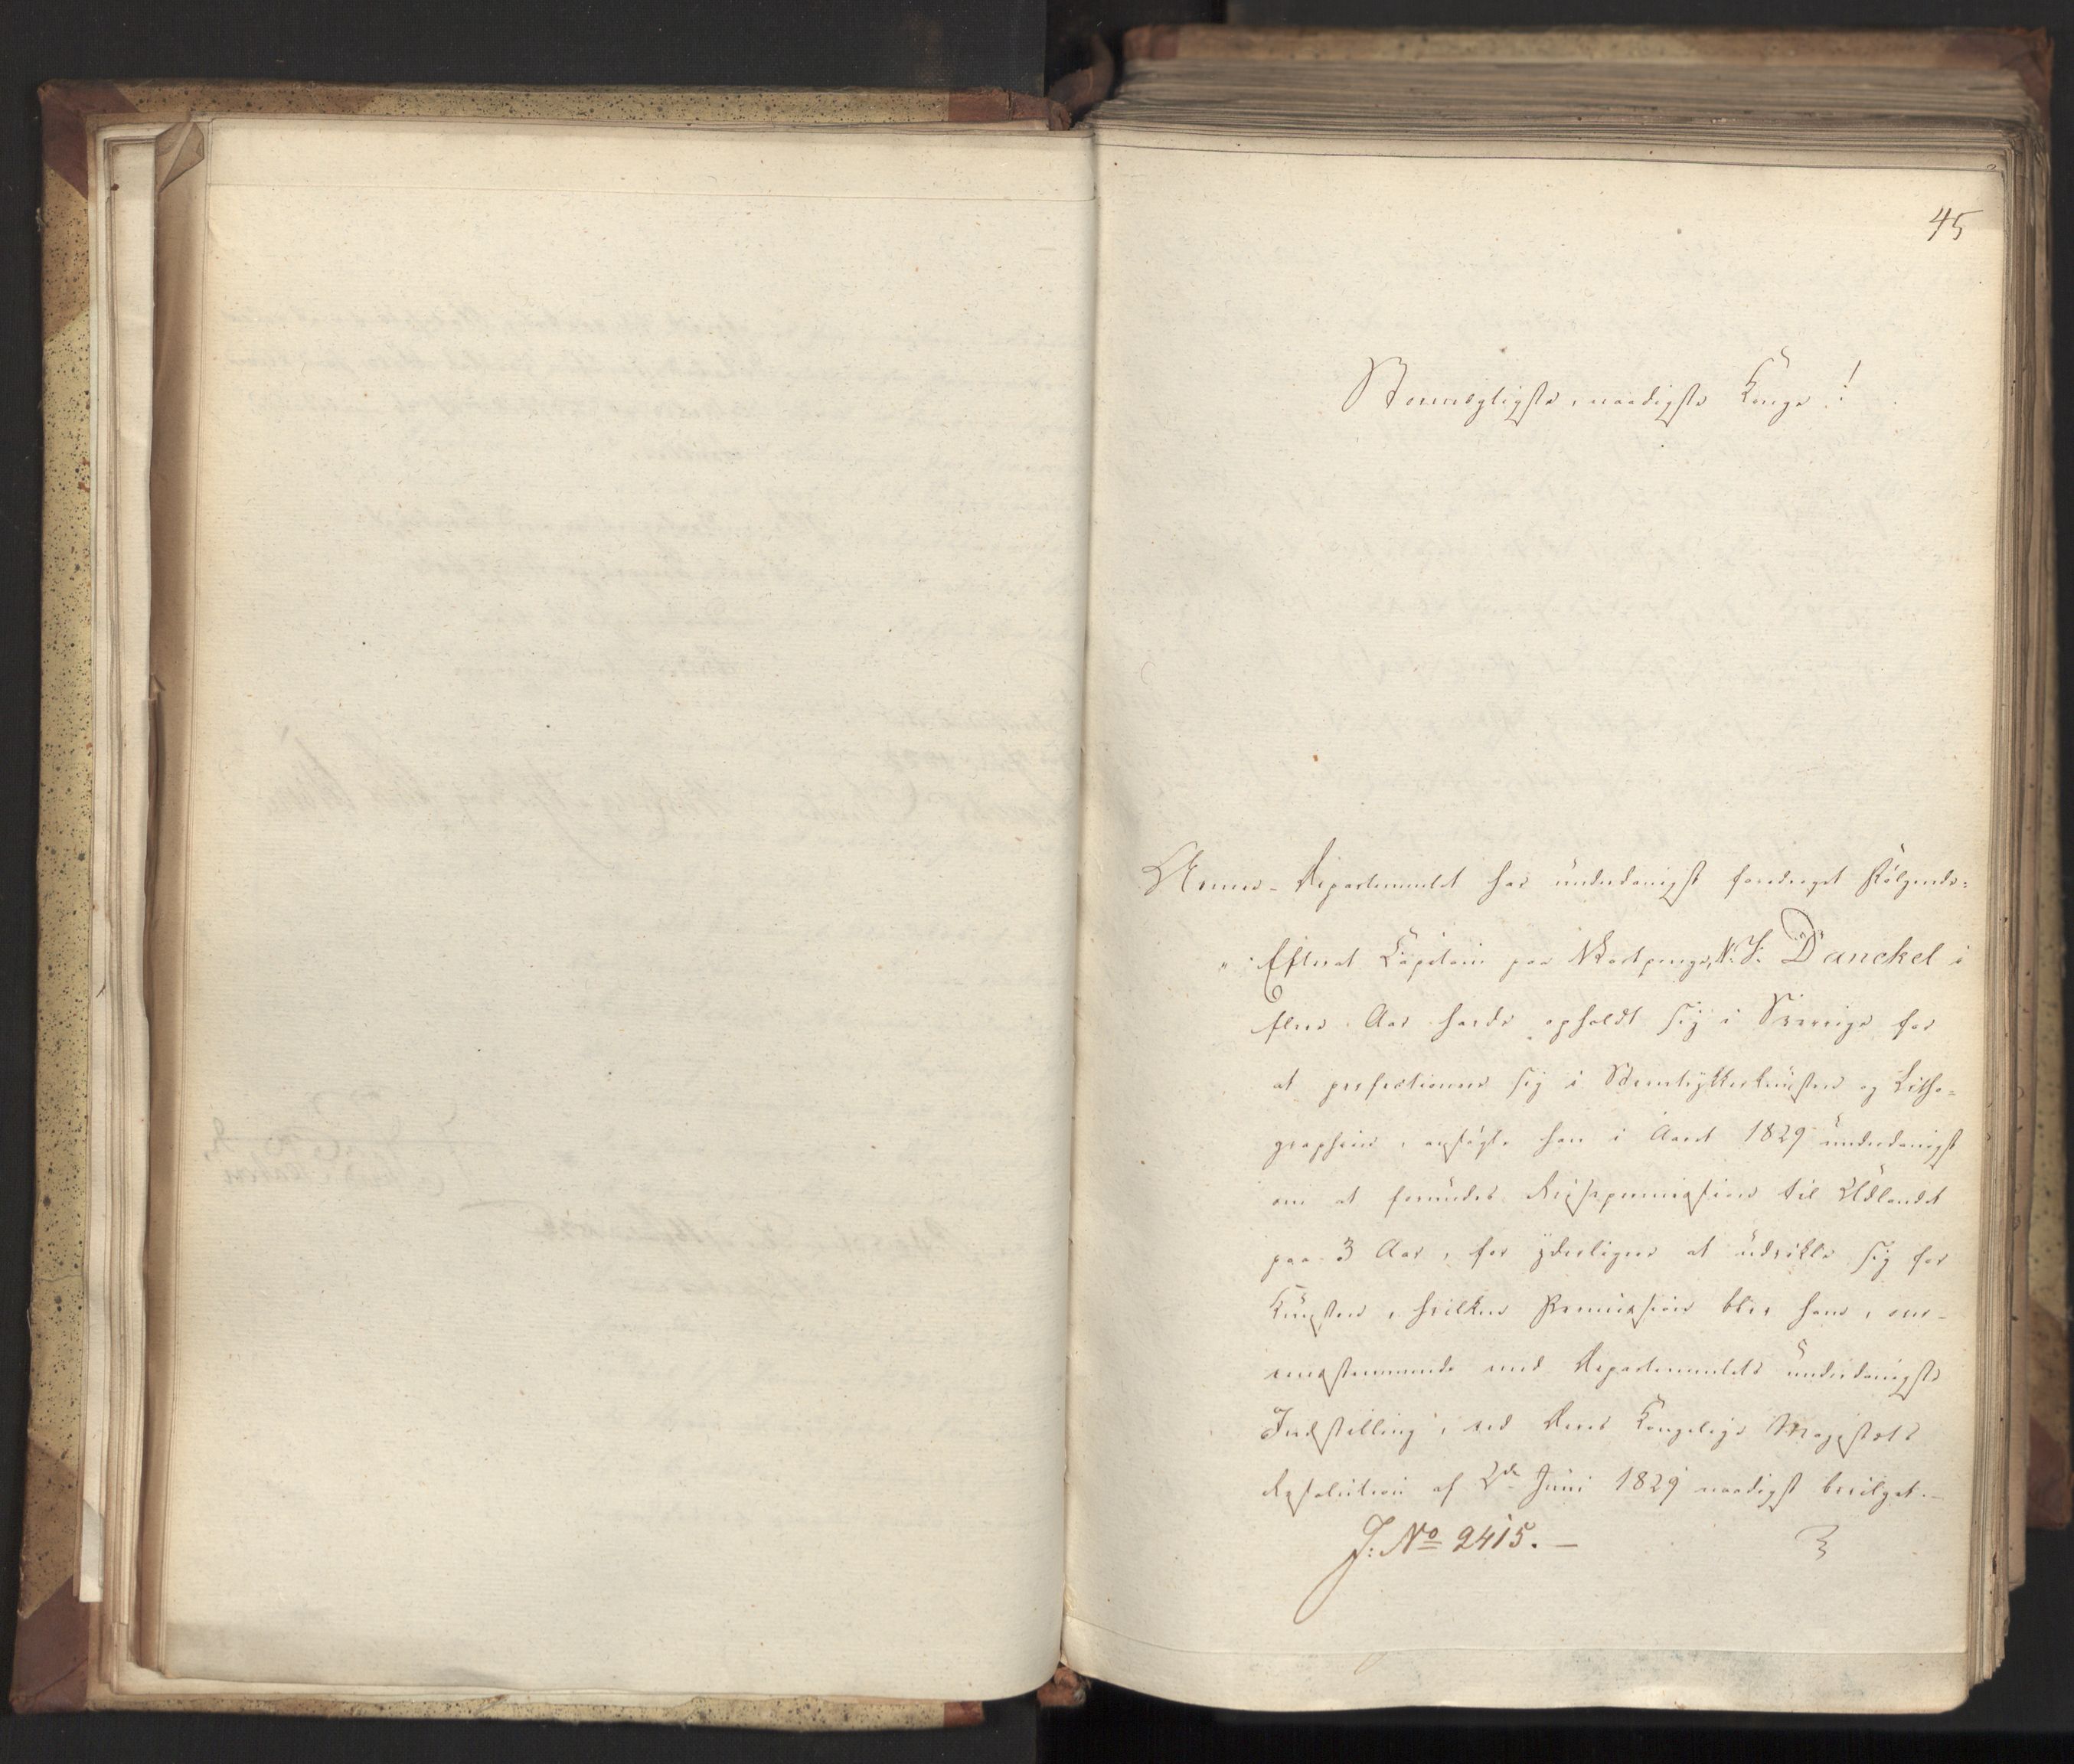 45
Stormægtigste, naadigste Konge!
Armee-Departementet har underdanigst foredraget Følgende:
"Efterat Capitain paa Vartpenge, N. J. Danckel i
flere Aar havde opholdt sig i Sverrige for
at perfectionere sig i Steentrykkerkunsten og Litho-
graphien, ansøgte han i Aaret 1829 underdanigst
om at forundes Reisepermission til Udlandet
paa 3 Aar, for yderligere at udvikle sig for
Kunsten, hvilken Permission blev ham, over-
eensstemmende med Departementets underdanigste
Indstilling, ved Deres Kongelige Majestæts
Resolution af 2de Juni 1829 naadigst bevilget.—
J: No 2415.—